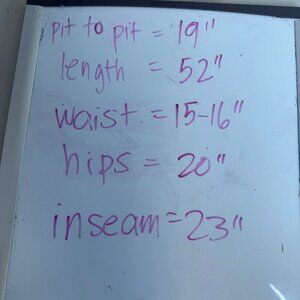 pit to pit = 19"
length = 52"
waist = 15-16"
hips = 20"
inseam = 23"